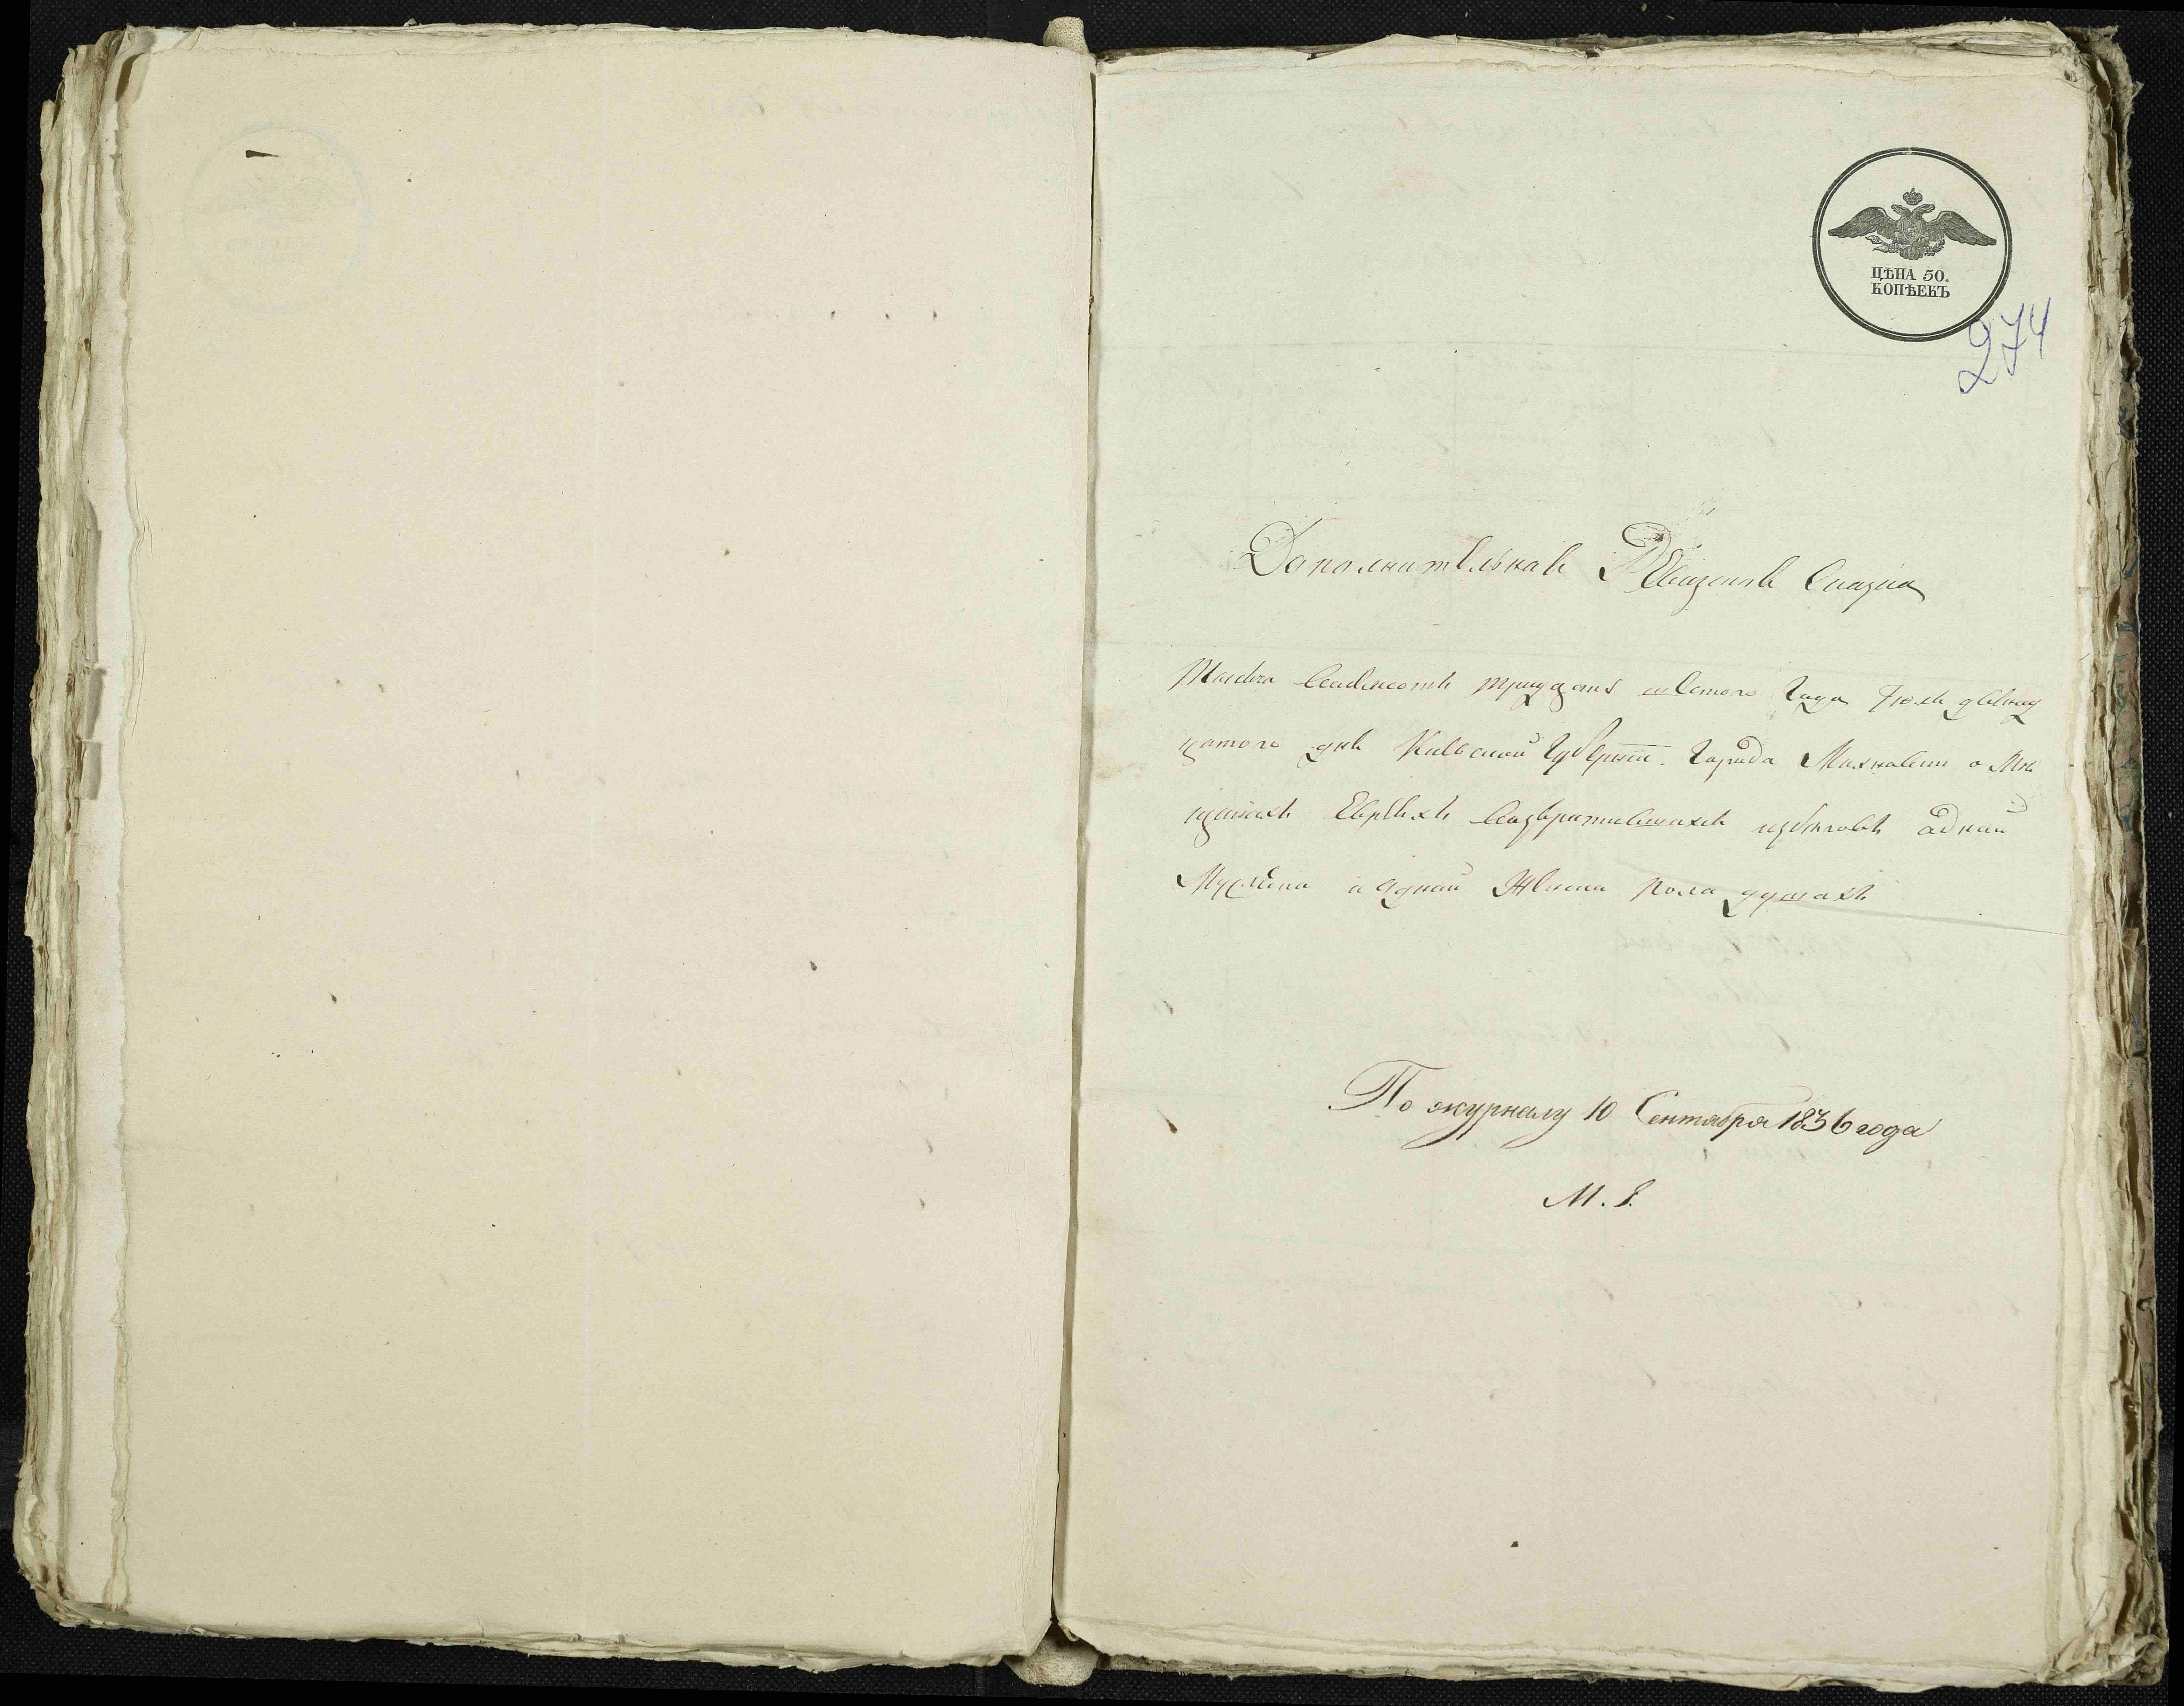 ЦѢНА 50.
КОПѢЕКЪ
274
Дополнительная Ревизская Сказка
Тысяча восемсотъ тридцать шестого Года Іюля двенад
цатого дня Киевской Губерніи. Города Махновки о Мѣ
щанахъ Евреяхъ возвратившихся избѣговъ одной
Мужеска и одной Женска пола душахъ
По журналу 10 Сентября 1836 года